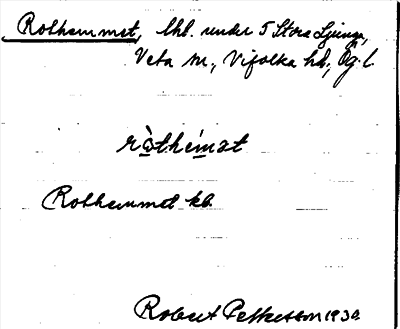 Rothemmet, lhb. under 5 Stora Ljunga,
Veta sn., Vifolka hd., Ög. l.
ròthemət
Rothemmet kb
Robert Petterson 1930